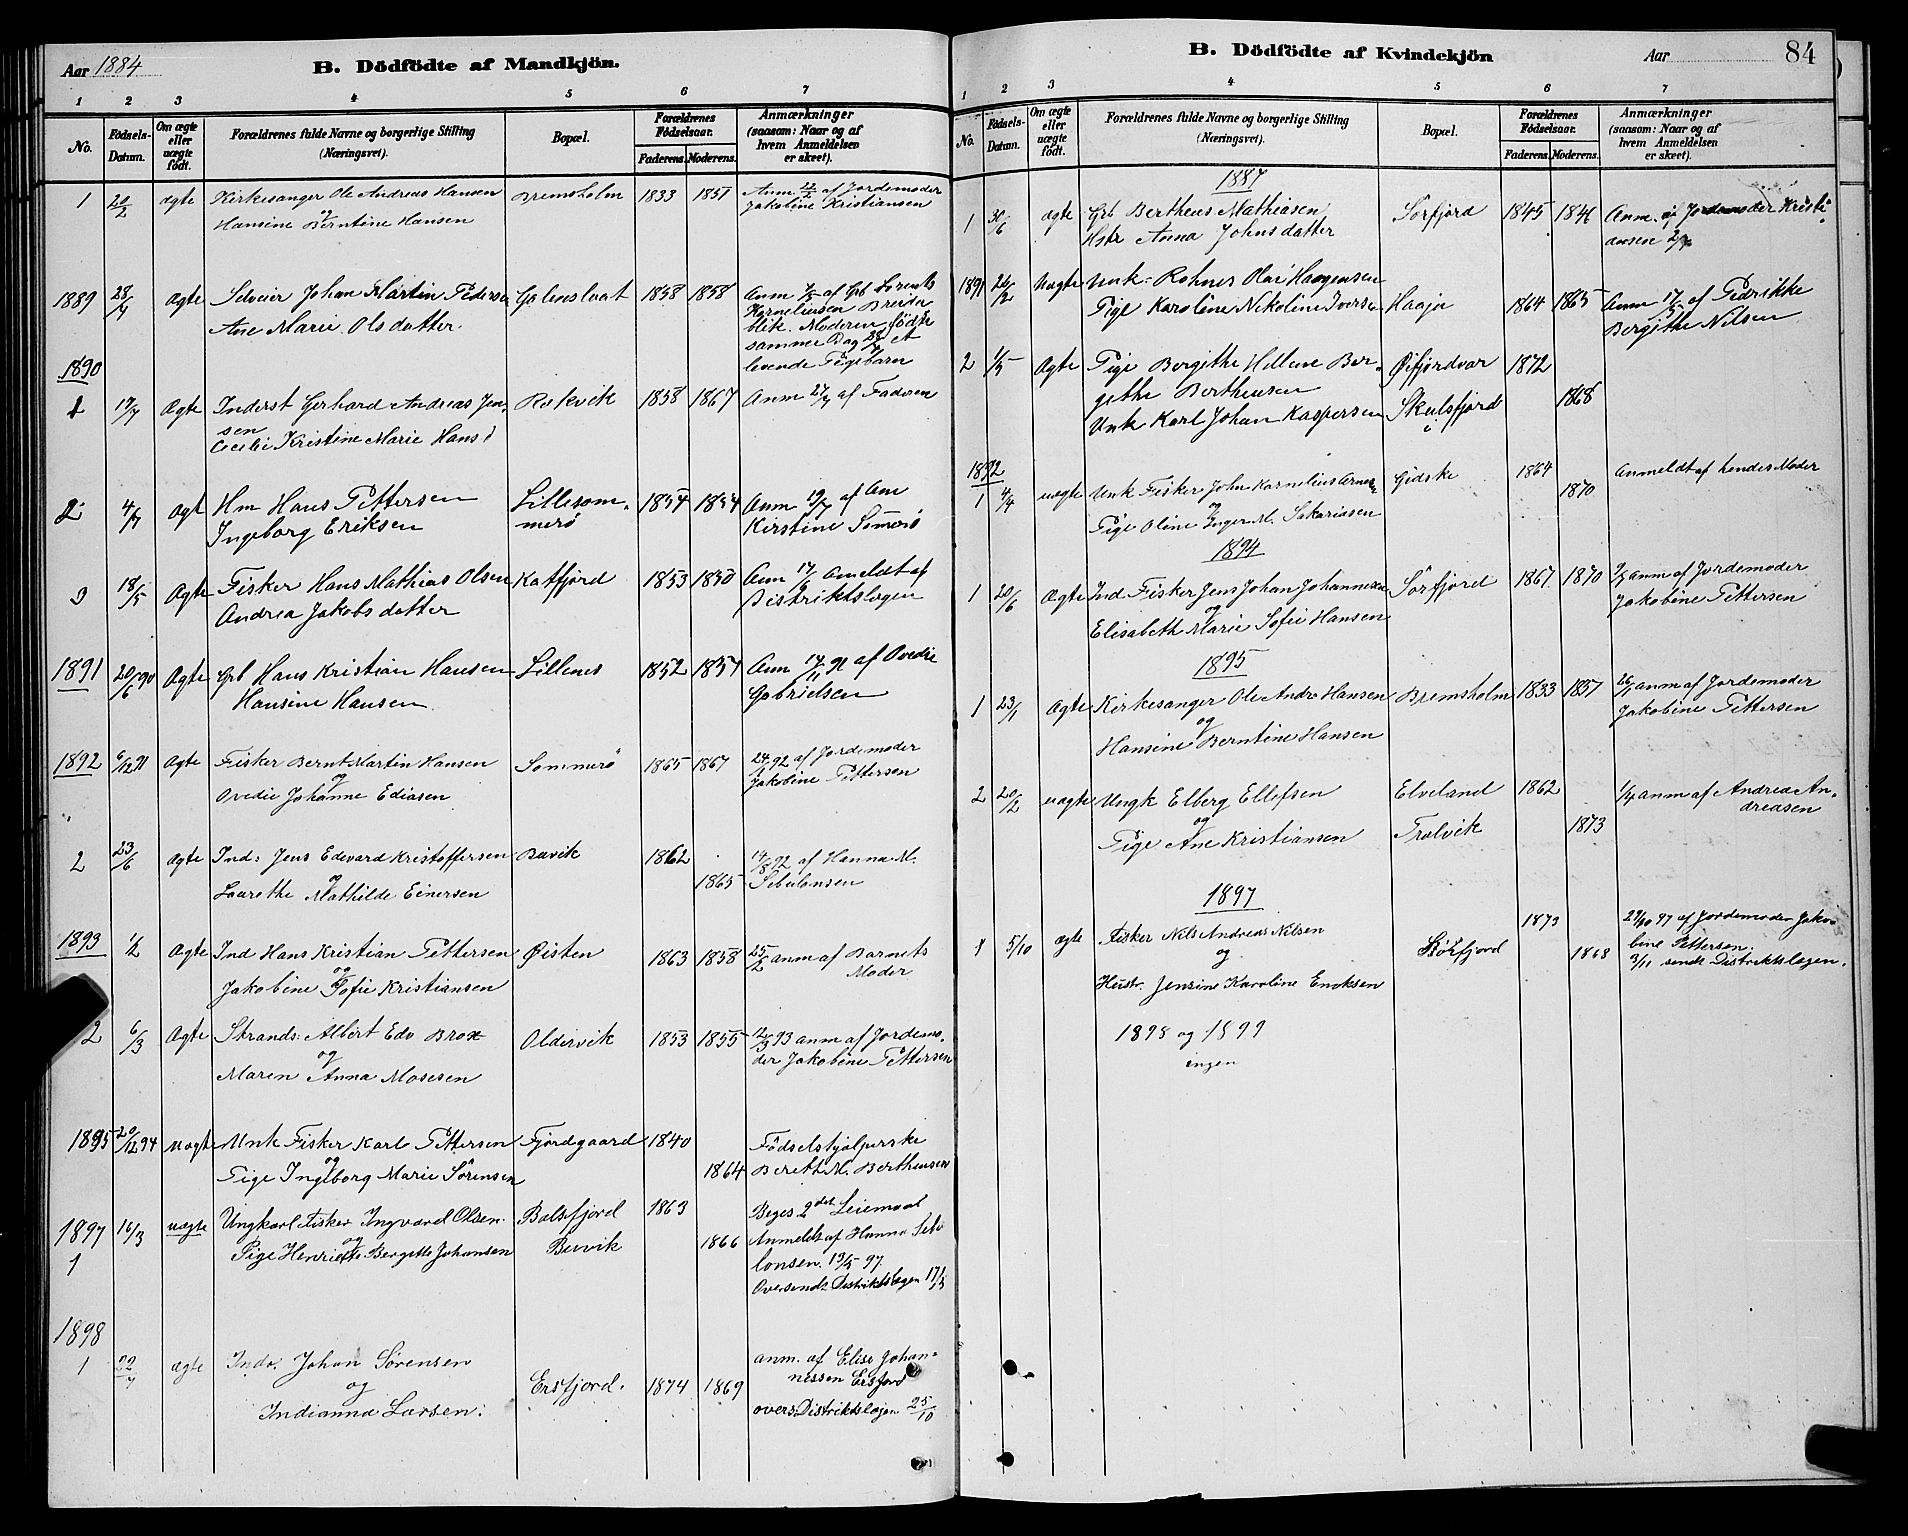 Aar 1884
B. Dödfödte af Mandkjön.
1 2 3 4 5 6 7
No.
Födsels-Datum.
Om ægte eller uægte födt.
Forældrenes fulde Navne og borgerlige Stilling (Næringsvei).
Bopæl.
Forældrenes Födselsaar.
Faderens. Moderens.
Anmærkninger (saasom: Naar og af hvem Anmeldelsen er skeet).
1 20/2 ægte Kirkesanger Ole Andreas Hansen Bremsholm 1833 1851 Anm 22/2 af Jordemoder
og Jakobine Kristiansen
Hansine Berntine Hansen
1889 28/4 Ægte Selveier Johan Martin Pedersen 1858 1858 Anm af Grb Lorents
Ane Marie Olsdatter. Korneliussen Breidablik. Moderen födte
sammen Dag 28/4 et
levende Pigebarn
1890
1 17/7 Ægte Inderst Gerhard Andreas Jen- Rekvik 1858 1867 Anm 27/7 af Faderen
sen
Cecilie Kristine Marie Hansd
2 4/7 Ægt Hm Hans Pettersen Lillesom- 1854 1854 Anm 19/7 af Ane
Ingeborg Eriksen merö Kirstine Sömerö
3 18/5 Ægte Fisker Hans Mathias Olsen Katfjord 1853 1850 Anm 17/6 Ameldt af
Andrea Jakobsdatter Distriktslægen
1891 20/6 90 Ægte Grb Hans Kristian Hansen Lillenes 1852 1857 Anm 17/11 91 af Ovedie
Hansine Hansen Gabrielsen
1892 6/12 91 Ægte Fisker Bernt Martin Hansen Sommerö 1865 1867 24/1 92 af Jordemoder
og Jakobine Pettersen
Ovedie Johanne Ediasen
2 23/6 Ægte Ind: Jens Edevard Kristoffersen Buvik 1862 14/8 92 af Hanna M.
og 1865 Sebulonsen
Laurethe Mathilde Einersen
1893 1/2 Ægte Ind Hans Kristian Pettersen Øisten 1863 1858 25/2 anm af Barnets
og Moder
Jakobine Sofie Kristiansen
2 6/3 Ægte Strands: Albert Edv Brox Oldervik 1853 1855 12/3 93 anm af Jordemo-
og der Jakobine Pettersen
Maren Anna Mosesen
1895 20/12 94 uægte Unk Fisker Karl Pettersen Fjordgaard 1840 Födselshjælperske
og 1864 Bereth M. Berthensen
Pige Ingeborg Marie Sörensen
1897 16/3 uægte Ungkarl Fisker Ingvard Olsen. Balsfjord 1863 Beges 2det Leiemaal
og Buvik 1866 Anmeldt af Hanna Sebu
1 Pige Henriette Bergitte Johansen lonsen. 19/3 97.
Oversendt Distriktslægen 17/5
1898
1 22/7 ægte Indr. Johan Sörensen anm. af Elise Johan-
og Ersfjord. 1874 1869 nessen Ersfjord
Indianna Larsen. overs. Distriktslægen 25/10
B. Dödfödte af Kvindekjön
Aar 84
1 2 3 4 5 6 7
No.
Födsels-Datum.
Om ægte eller uægte födt.
Forældrenes fulde Navne og borgerlige Stilling (Næringsvei).
Bopæl.
Forældrenes Födselsaar.
Faderens. Moderens.
Anmærkninger (saasom: Naar og af hvem Anmeldelsen er skeet).
1887
1 30/6 ægte Grb Bertheus Mathiasen Sörfjord 1845 1846 Anm. af Jordemoder Kristi-
Hstr Anna Johnsdatter ansen 2/7
1891 20/2 Uægte Unk: Olai Haagensen
Pige Karoline Nikoline Iversen Haaja 1864 1865 Anm 17/3 af Fedrikke
Bergithe Nilsen
2 1/5 Ægte Pige Bergithe Hellene Ber- Øifjordvær 1872
githe Berthensen
Unk Karl Johan Kaspersen Skulsfjord 1868
1892
1 4/4 uægte Unk Fisker John Kornelius Arnesen Gidske 1864 Anmeldt af hendes Moder
og 1870
Pige Oline Inger M. Sakariasen
1894
1 20/6 Ægte Ind Fisker Jens Johan Johannesen Sörfjord 1867 1870 anm af Jordemoder
og Jakobine Pettersen
Elisabeth Marie Sofie Hansen
1895
1 23/1 Ægte Kirkesanger Ole Andr Hansen Bremsholm 1833 1857 26/1 anm af Jordemoder
og Jakobine Pettersen
Hansine Berntine Hansen
2 20/2 uægte Ungk Elberg Ellefsen Elveland 1862 1/4 anm af Andrea An-
og dreasen
Pige Ane Kristiansen Trolvik 1873
1897
1 5/10 ægte Fisker Nils Andreas Nilsen 1873 29/10 97 af Jordemoder Jako-
og Sörfjord 1868 bine Pettersen.
Hustr. Jensine Karoline Enoksen 3/11 sendt Distriktslægen.
1898 og 1899
ingen